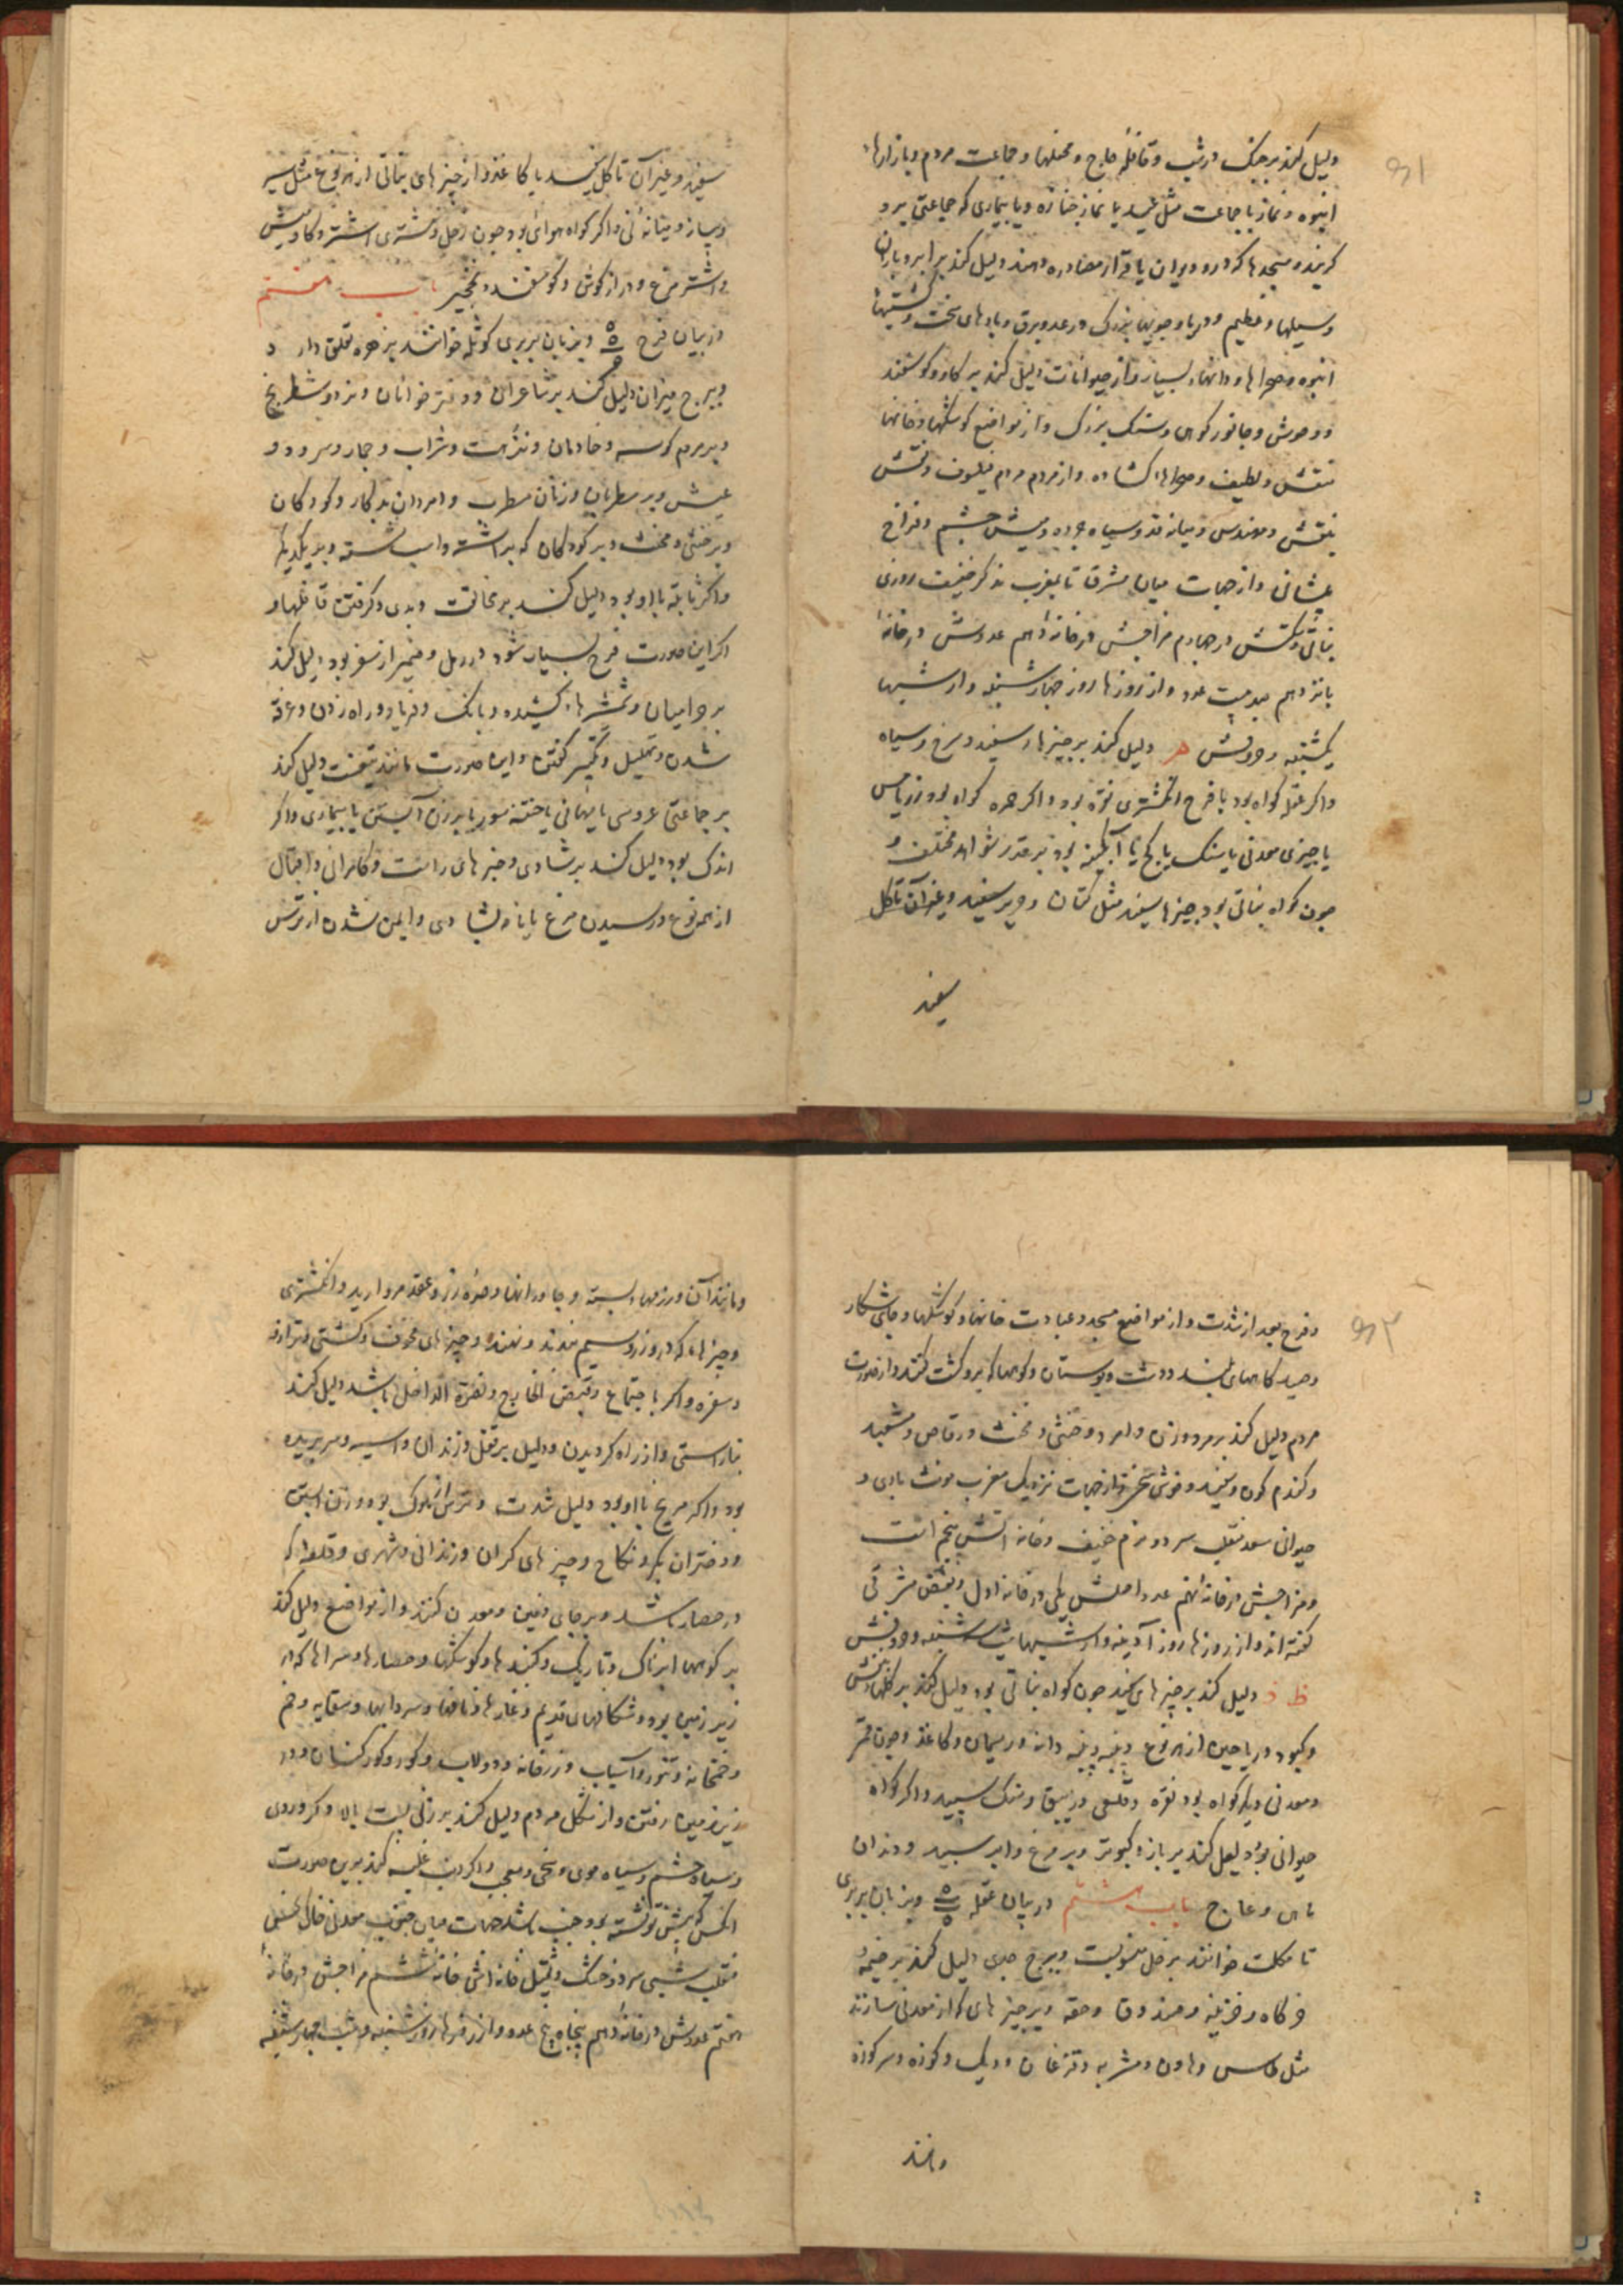 دلیل کند بر جنک در شب و قافله خارج و محفلها و جماعت مردم و بازارهاء
انبوه و نماز با جماعت مثل عید یا نماز جنازه و یا بیماری که جماعتی برو
کریند و مسجدها که درو دیوان یا قرآن دهند دلیل کند بر ابر و باران
و سیلها و عظیم و دریا و جویهاء بزرک و رعد و برق و بادهای سخت و کشتیها
انبوه و صحراها و دانهاء بسیار و از حیوانات دلیل کند بر کاو و کوسفند
و وحوش و جانور کوهی و سنک بزرک و از مواضع کوشکها و خانها
منقش و لطیف و صحراهاء کشاده و از مردم مردم فیلسوف و نقش
بنقش و مهندس و میانه قد و سیاه چرده و میش چشم و فراخ
پیشانی و از جهات میان مشرق تا بمغرب مذکر ضعیف روزی
نباتی در چهارم مزاجش در خانه دهم عددش در خانه
پانزدهم صد و بیست عدد و از روزها روز چهارشنبه و از شبها
یکشنبه و حروفش ھ دلیل کند بر چیزهاء سفید و سرخ و سیاه
و اکر عقله کواه بود با فرح انکشتری نقره بود و اکر حمره کواه بود زر یا مس
یا چیزی معدنی یا سنک یا کچ یا آبکینه بود بر قدر شواهد مختلف و
چون کواه نباتی بود چیزها سفید مثل کتان و حریر سفید و غیر آن تا کل
سفید
سفید و غیر آن تا کل سفید یا کاغذ و از چیزهای نباتی از هر نوع مثل سیر
و پیاز و میانه نی و اکر کواه هوائی بود چون زحل و مشتری اشتر و کاومیش
و اشتر مرغ و دراز کوش و کوسفند و نخجیر باب هفتم
در بیان فرح و بزبان بربری خوانند بزهره تعلق دارد
و ببرج میزان دلیل کند بر شاعران و دفتر خوانان و نرد و شطرنج
و بر مردم کوسه و خادمان و نزهت و شراب و خمار و سرود و
عیش و بر مطربان و زنان مطرب و امردان بدکار و کودکان
و بر خنثی و مخنث و بر کودکان که بر اشتر و اسب نشسته و بر یکدیکر
و اکر ثابته با او بود دلیل کند بر مخالفت و بدی و کرفتن قافلها و
اکر این صورت فرح بسیار شود در رمل و ضمیر از سفر بود دلیل کند
بر حرامیان و شمشیرهاء کشیده و بانک و فریاد و راه زدن و غرقه
شدن و تهلیل و تکبیر کفتن و این صورت مانند دلیل کند
بر جماعتی عروسی یا پنهانی یا ختنه سور یا بر زن آبستن یا بیماری و اکر
اندک بود دلیل کند بر شادی و خبرهای راست و کامرانی و اقبال
از هر نوع و رسیدن مرغ یا نامه بشادی و ایمن شدن از ترس
و فرح بعد از شدت و از مواضع مسجد و عبادت خانها و کوشکها و جای شکار
و صید کاههای بلند و دشت و بوستان و کوهها که برو کشت کنند و از صورت
مردم دلیل کند بر مرد و زن و امرد و خنثی و مخنث و رقاص و مشعبد
و کندم کون و سفید و خوش سخن و از جهات نزدیک مغرب مونث بادی و
حیوانی سعد منقلب سرد و نرم خفیف و خانه آتش پنجم است
و مزاجش در خانه انهم عدد اصلش یکی در خانه اول و بعضی مشرقی
کفته اند و از روزها روز آدینه و از شبها شب سه شنبه و حروفش
ظ ذ دلیل کند بر چیزهای سفید چون کواه نباتی بود دلیل کند بر کلهاء بنفش
و کبود و ریاحین از هر نوع و پنبه و پنبه دانه و ریسمان و کاغذ و چون قمر
و معدنی دیکر کواه بود نقره و قلعی و زیبق و سنک سپید و اکر کواه
حیوانی بود دلیل کند بر باز و کبوتر و بر مرغ و ابر سپید و دندان
ماهی و عاج باب هشتم در بیان عقله و بزبان بربری
تامکلت خوانند بزحل منسوبست و ببرج جدی دلیل کند بر خیمه و
خرکاه و خزینه و صندوق و حقه و بر چیزهای که از معدنی سازند
مثل طاس و هاون و مشربه و قزغان و دیک و کوزه و سرکوزه
و مانند
و مانند آن و رزمهاء بسته و جامه دانها و صره زر و عقد مروارید و انکشتری
و چیزهاء که در زر و سیم بندند و نهند و چیزهای مجوف و کشتی و ترازو
و سفره و اکر با اجتماع و قبض الخارج و نصرة الداخل باشد دلیل کند
بناراستی و از راه کردیدن و دلیل بر قفل و زندان و اسیر و سر بریده
بود و اکر مریخ با او بود دلیل شدت و ترس از ملوک بود و زن آبستن
و دختران بکر و نکاح و چیزهای کران و زندانی و شهری و قلعه که
در حصار باشد و بر جای دفین و معدن کنند و از مواضع دلیل کند
بر کوهها ابرناک و تاریک و کنبدها و کوشکها و حصارها و سراها که از
زیر زمین بود و شکافهای قدیم و غارها و نقبها و سردابها و سقایه و خم
و خمخانه و تنور و آسیاب و زرقانه و دولاب و کور و کورکنان و در
زیر زمین رفتن و از شکل مردم دلیل کند بر زنی پست بالا و کرد روی
و سیاه چشم و سیاه موی و سخی و معجب و اکر دلیل غلبه کند بدین صورت
انکس که پیش تو نشسته بود جنب باشد جهات میان جنوب معدنی خاکی نحس
منقلب شبی سرد و خشک و ثقیل خانه اش خانه ششم مزاجش در خانه
هفتم عددش در خانه دهم پنجاه و پنج عدد و از روزها روز شنبه و شب چهارشنبه